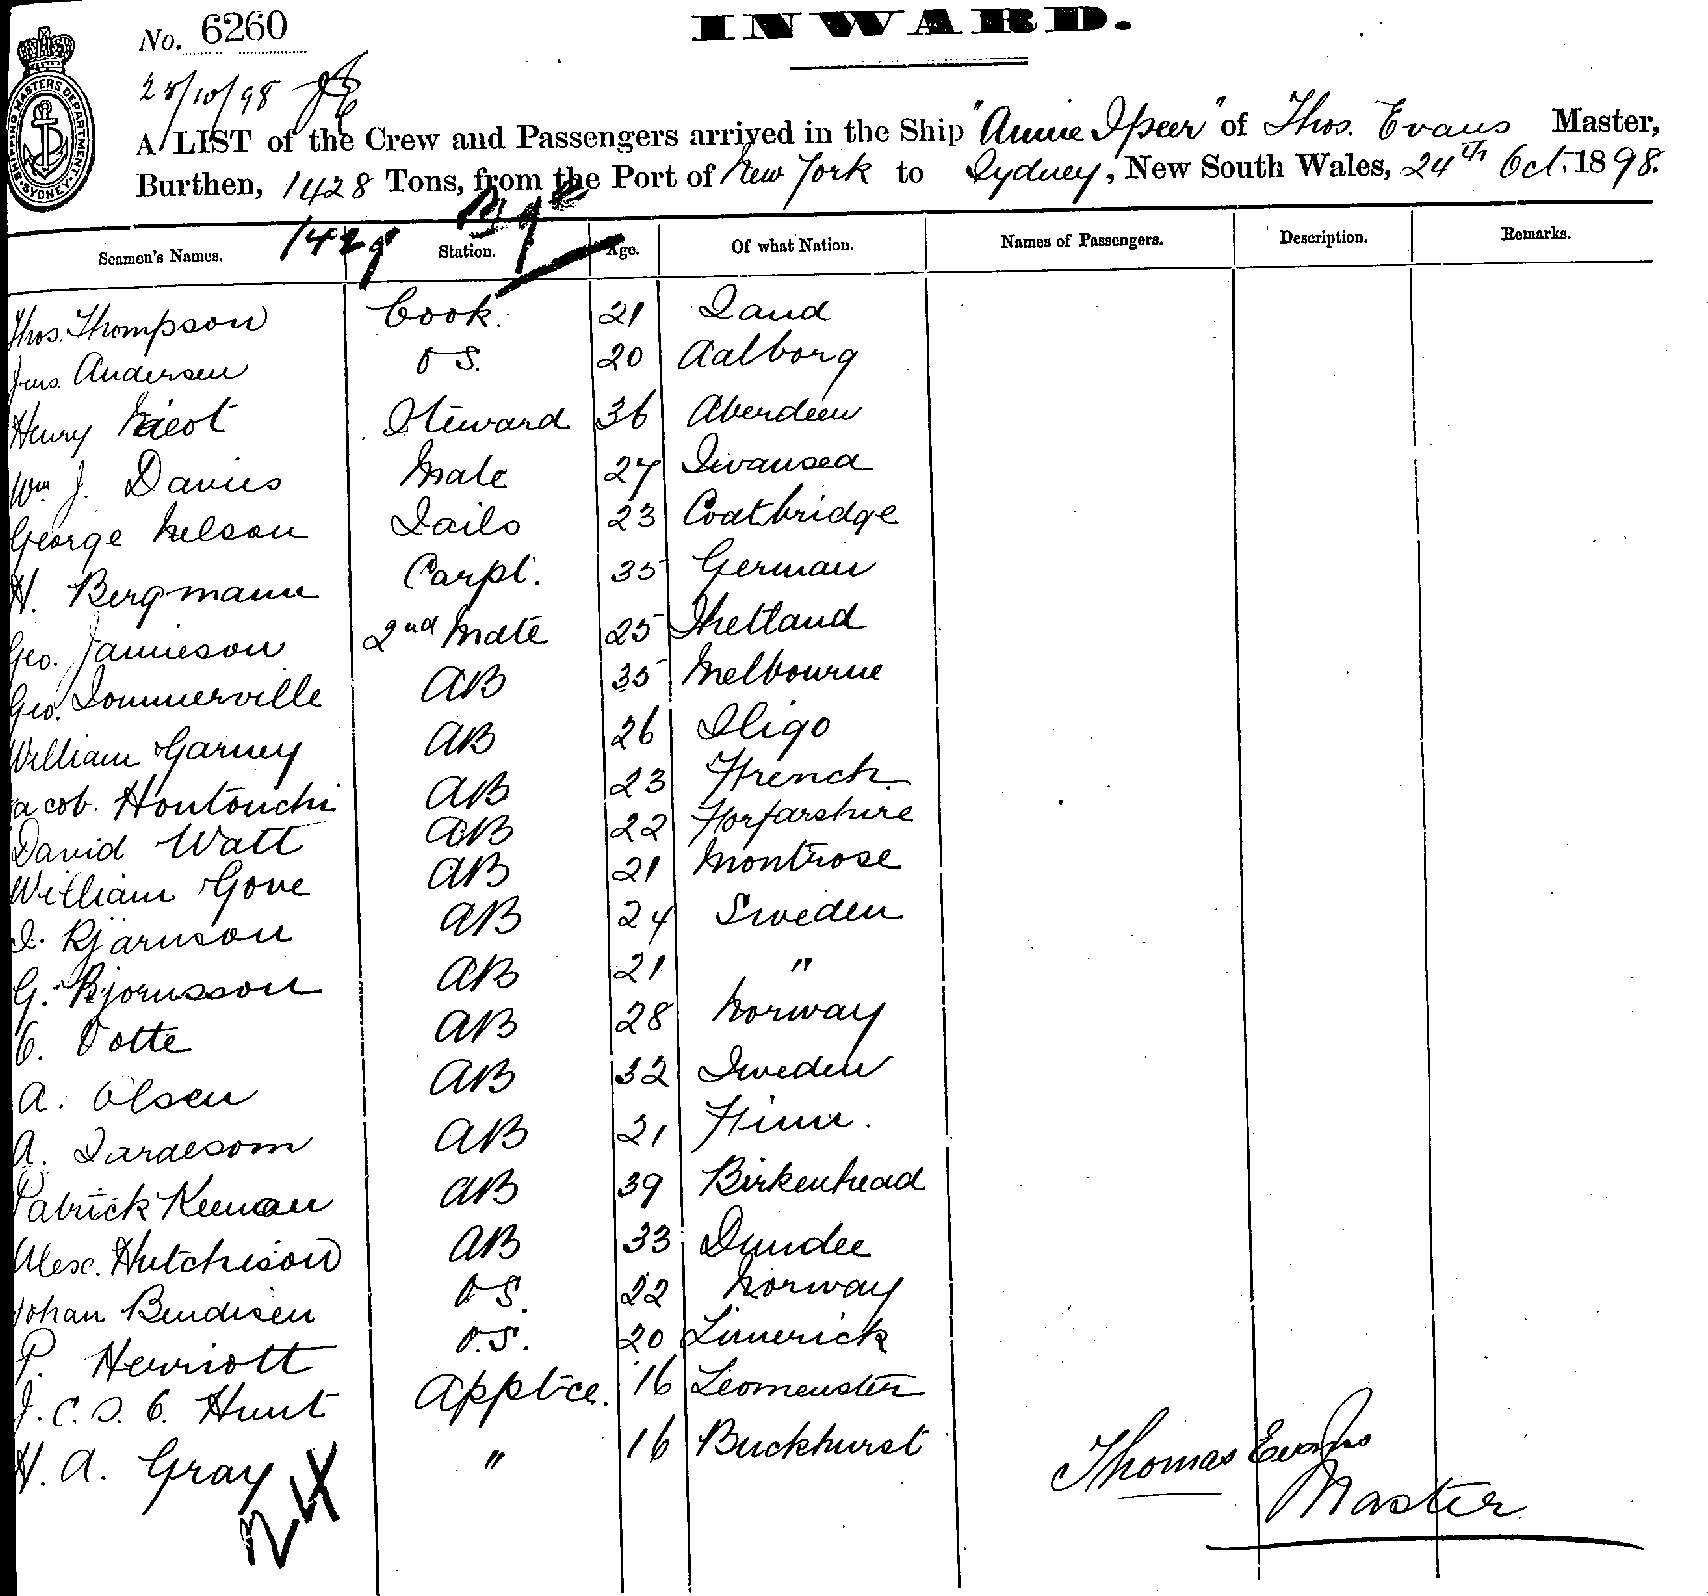 No. 6260
INWARD.
SHIPPING MASTERS DEPARTMENT
25/10/98
A LIST of the Crew and Passengers arrived in the Ship "Annie Speer" of Thos. Evans Master,
Burthen, 1428 Tons, from the Port of New York to Sydney, New South Wales, 24th Oct. 1898.
1429 Bqe
Seamen's Names. Station. Age. Of what Nation. Names of Passengers. Description. Remarks.
Thos. Thompson Cook. 21 Sand
Jens. Andersen O S. 20 Aalborg
Henry Steward 36 Aberdeen
Wm J. Davies Mate 27 Swansea
George Nelson Sails 23 Coatbridge
H. Bergmann Carpt. 35 German
Geo. Jamieson 2nd Mate 25 Shetland
Geo. Sommerville AB 35 Melbourne
William Garvey AB 26 Sligo
acob. Houtouchi AB 23 French
David Watt AB 22 Forfarshire
William Gove AB 21 Montrose
S. Bjarnson AB 24 Sweden
G. Bjornsson AB 21 "
C. Votte AB 28 Norway
A. Olsen AB 32 Sweden
A. AB 21 Finn.
Patrick Keenan AB 39 Birkenhead
Alex. Hutchison AB 33 Dundee
Johan Bendisen O S. 22 Norway
P. Herriott O.S. 20 Limerick
J. C. S. C. Hunt Apptce. 16 Leomenster
H. A. Gray " 16 Buckhurst
24
Thomas Evans
Master